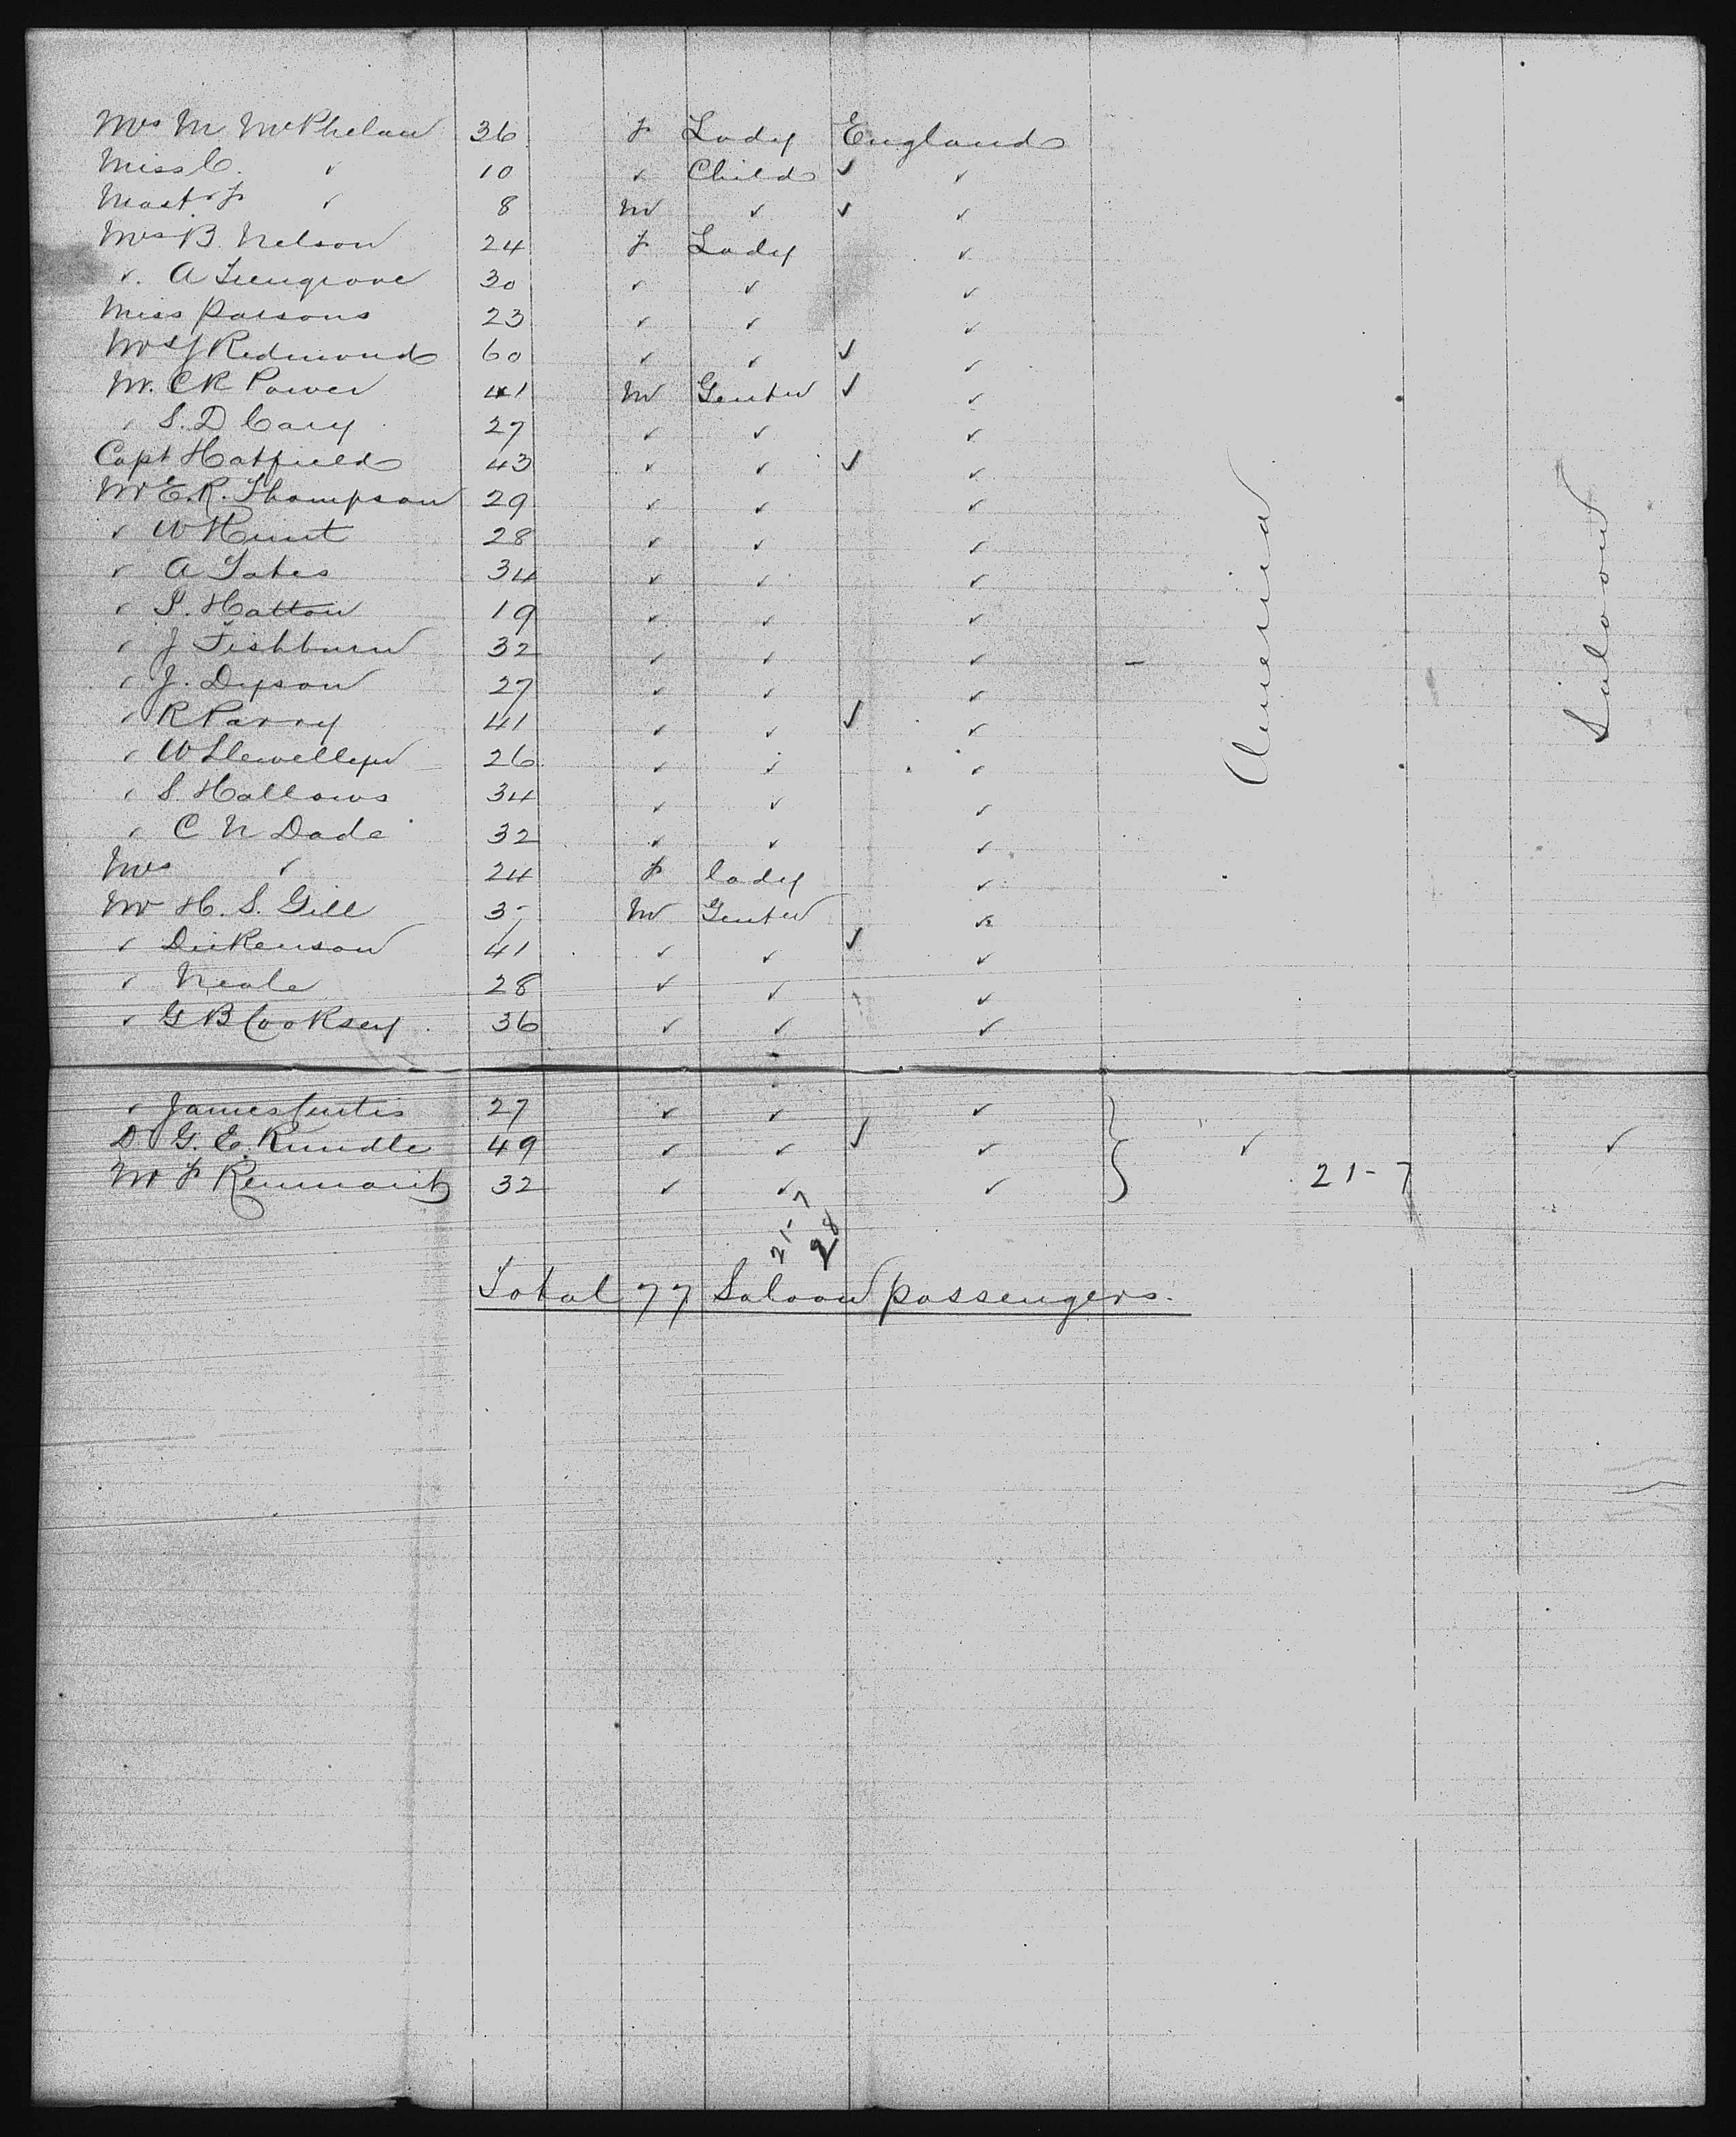 Mrs M McPhelan 36 F Lady England
Miss C. " 10 " Child ✓ "
Mast F " 8 M " ✓ "
Mrs B. Nelson 24 F Lady "
" A 30 " " "
Miss Parsons 23 " " "
Mrs J Redmond 60 " " ✓ "
Mr. C R Power 41 M Gentn ✓ "
" S. D Cary 27 " " "
Capt Hatfield 43 " " ✓ "
Mr E. R. Thompson 29 " " "
" W Hunt 28 " " "
" A Yates 34 " " "
" S. Hatton 19 " " "
" J Fishburn 32 " " " –
" J. Dyson 27 " " "
" R Parry 41 " " ✓ "
" W Llewellyn 26 " " "
" S Hallows 34 " " "
" C N Dade 32 " " "
Mrs " 24 F lady "
Mr H. S. Gill M Gentn "
" Dickenson 41 " " ✓ "
" Neale 28 " " "
" G B Cooksey 36 " " "
America
Saloon
" James Curtis 27 " " "
Dr G. E. Rundle 49 " " ✓ " " "
Mr F 32 " " " 21-7
21-7
28
Total 77 Saloon passengers.